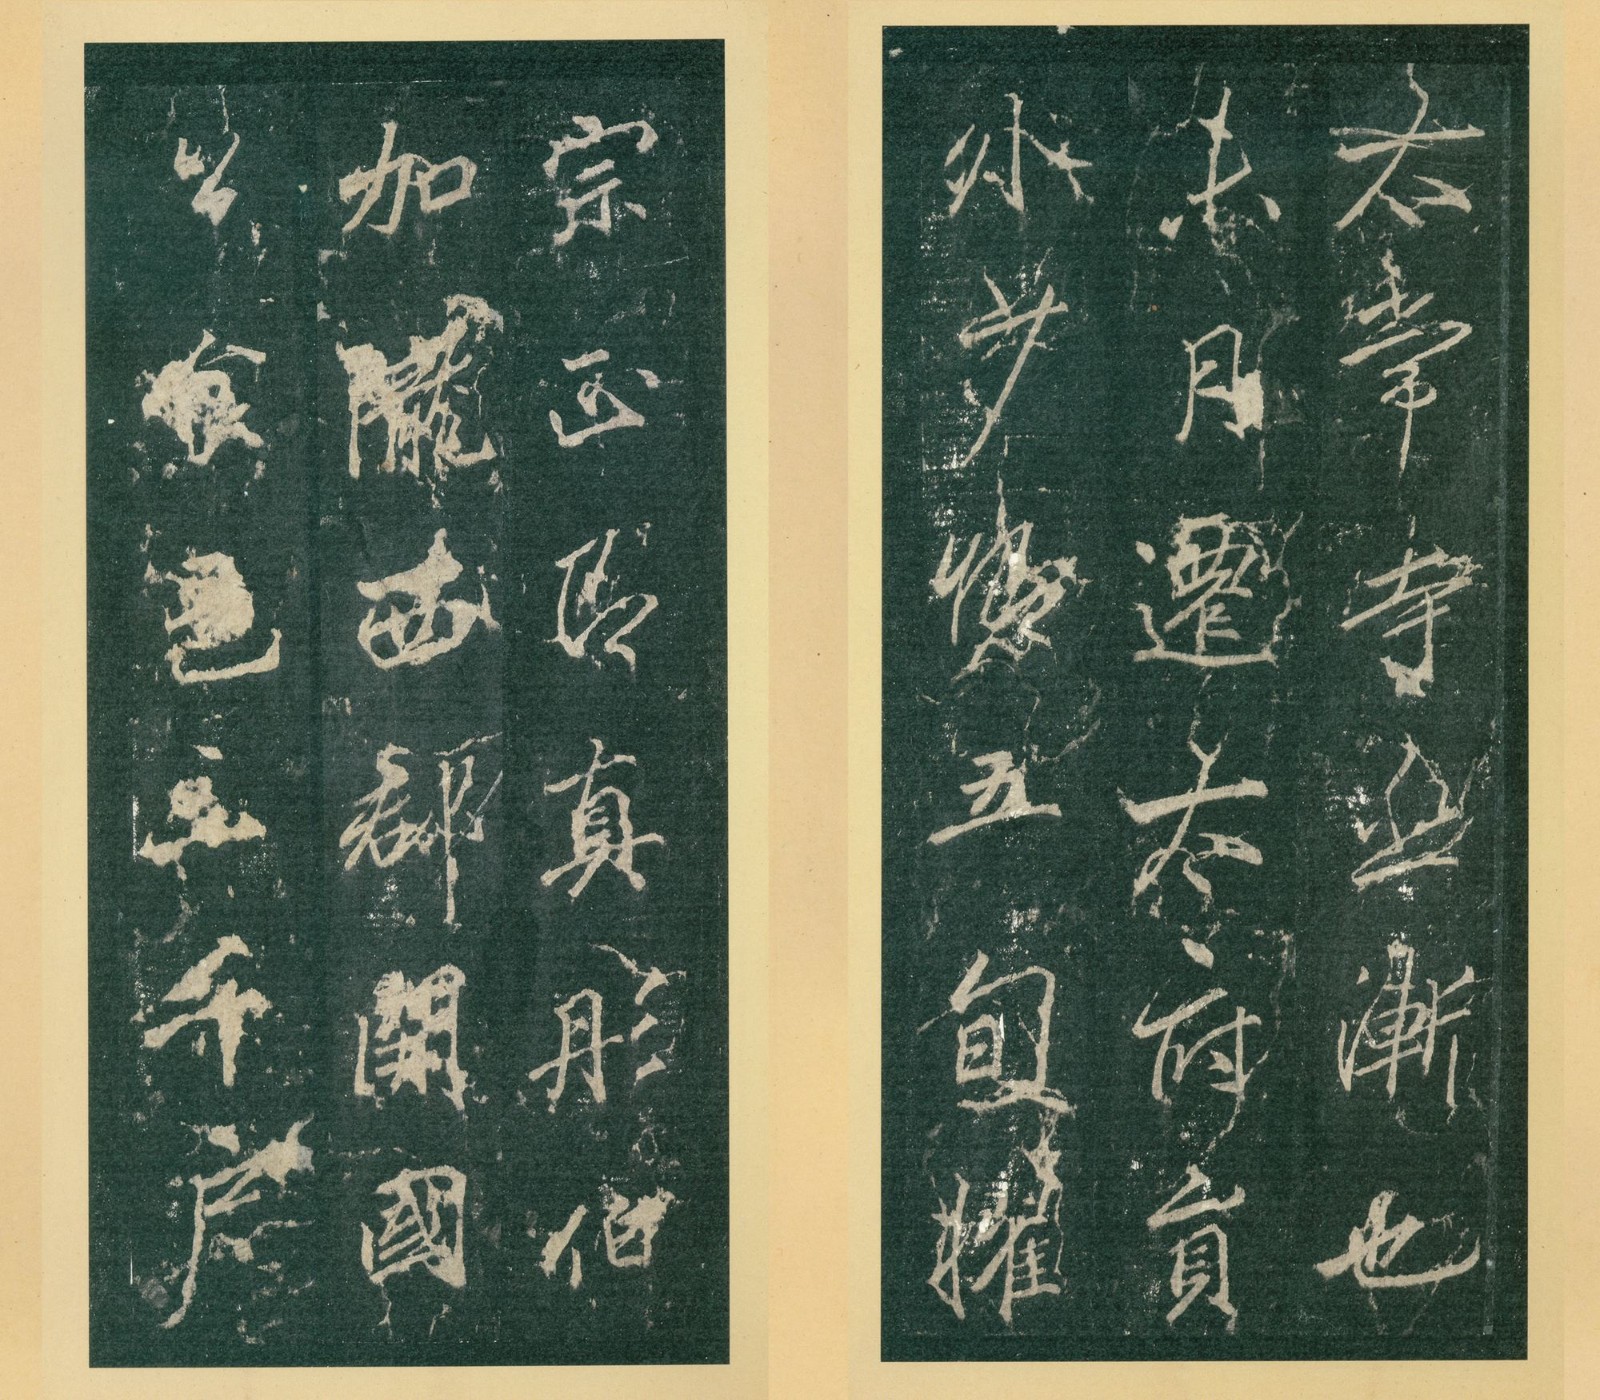 太常寺丞漸也
未月遷太府員
外少卿五旬擢
宗正卿真彤伯
加隴西郡開國
公食邑二千戶